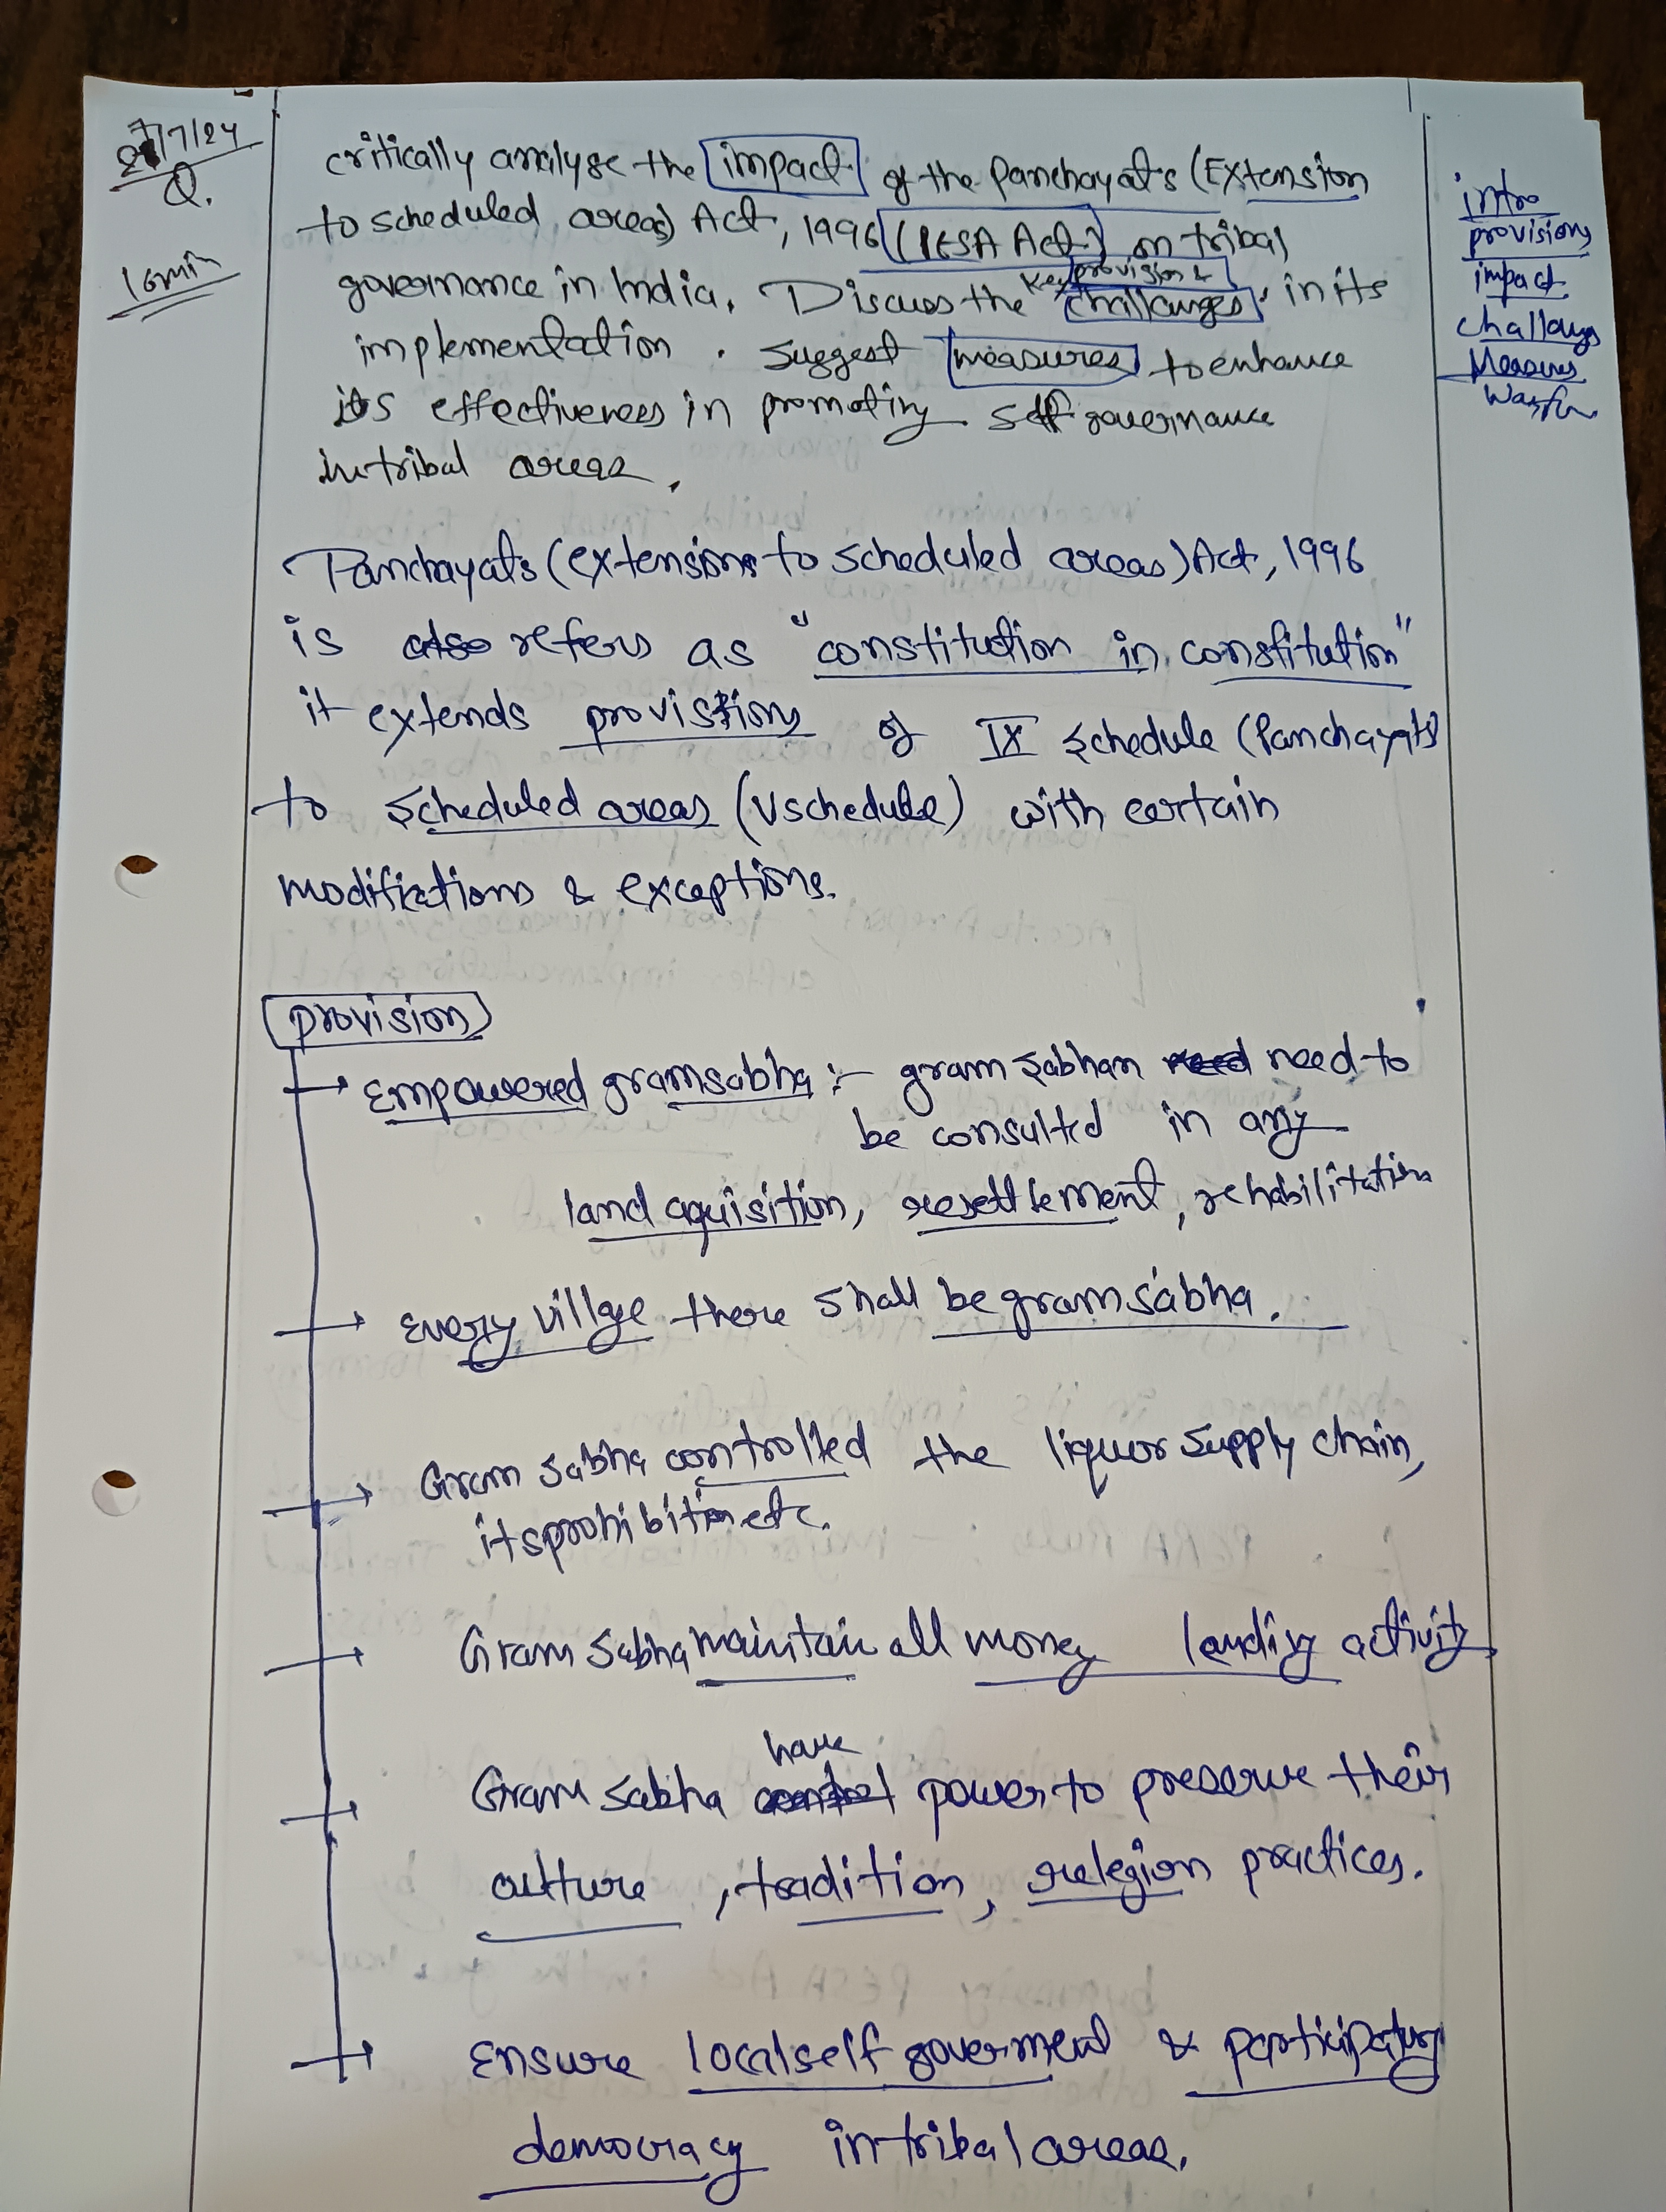 27/7/24
Q.
16min
critically analyse the impact of the Panchayats (Extension
to scheduled areas) Act, 1996 (PESA Act) on tribal
governance in India. Discuss the key provision &
challanges in its
implementation. Suggest measures to enhance
its effectiveness in promoting self governance
in tribal areas.
intro
provisions
impact
challangs
Measures
Panchayats (extensions to scheduled areas) Act, 1996
is also refers as "constitution in constitution"
it extends provisions of IX schedule (Panchayats)
to scheduled areas (V schedule) with certain
modifications & exceptions.
provision
Empowered gramsabha :- gram sabhan need need to
be consulted in any
land aquisition, resettlement, rehabilitation
Every villge there shall be gram sabha.
Gram sabha controlled the liquor supply chain,
its prohibition etc.
Gram sabha maintain all money landing activity
have
Gram sabha control power to preserve their
culture, tradition, relegion practices.
Ensure local self government & participatory
democracy in tribal areas.